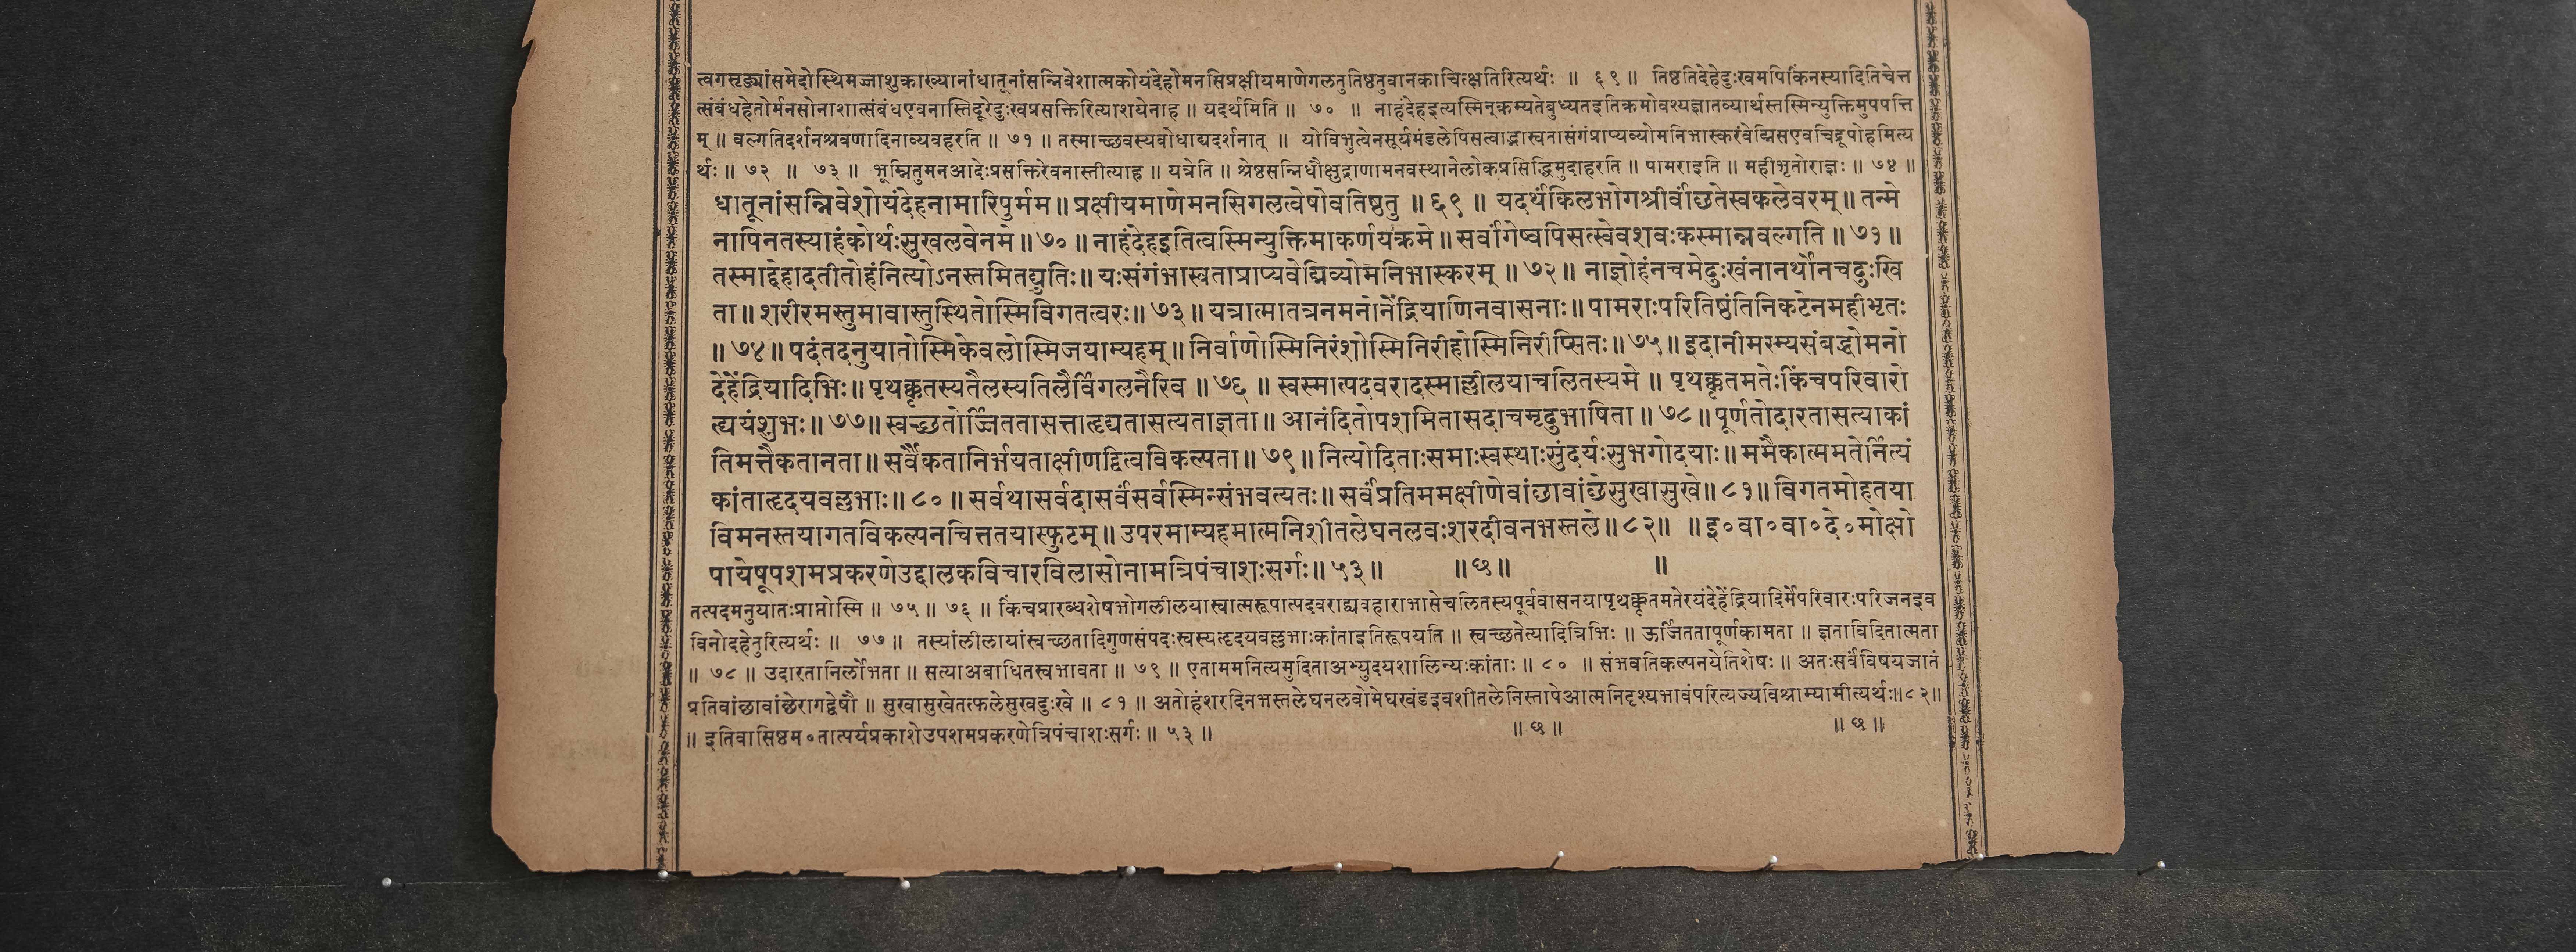 त्वगसृङ्मांसमेदोस्थिमज्जाशुक्राख्यानांधातूनांसन्निवेशात्मकोयंदेहोमनसिप्रक्षीयमाणेगलतुतिष्ठतुवानकाचित्क्षतिरित्यर्थः ॥ ६९ ॥ तिष्ठतिदेहेदुःखमपिकिंनस्यादितिचेत्त
त्संबंधहेतोर्मनसोनाशात्संबंधएवनास्तिदूरेदुःखप्रसक्तिरित्याशयेनाह ॥ यदर्थमिति ॥ ७० ॥ नाहंदेहइत्यस्मिन्क्रम्यतेबुध्यतइतिक्रमोवश्यज्ञातव्यार्थस्तस्मिन्युक्तिमुपपत्ति
म् ॥ वल्गतिदर्शनश्रवणादिनाव्यवहरति ॥ ७१ ॥ तस्माच्छवस्यबोधाद्यदर्शनात् ॥ योविभुत्वेनसूर्यमंडलेपिसत्वाद्भास्वतासंगंप्राप्यव्योमनिभास्करंवेद्मिसएवचिद्रूपोहमित्य
र्थः ॥ ७२ ॥ ७३ ॥ भूम्नितुमनआदेःप्रसक्तिरेवनास्तीत्याह ॥ यत्रेति ॥ श्रेष्ठसन्निधौक्षुद्राणामनवस्थानेलोकप्रसिद्धिमुदाहरति ॥ पामराइति ॥ महीभृतोराज्ञः ॥ ७४ ॥
धातूनांसन्निवेशोयंदेहनामारिपुर्मम ॥ प्रक्षीयमाणेमनसिगलत्वेषोवतिष्ठतु ॥ ६९ ॥ यदर्थंकिलभोगश्रीर्वांछतेस्वकलेवरम् ॥ तन्मे
नापिनतस्याहंकोर्थःसुखलवेनमे ॥ ७० ॥ नाहंदेहइतित्वस्मिन्युक्तिमाकर्णयक्रमे ॥ सर्वांगेष्वपिसत्स्वेवशवःकस्मान्नवल्गति ॥ ७१ ॥
तस्माद्देहादतीतोहंनित्योऽनस्तमितद्युतिः ॥ यःसंगंभास्वताप्राप्यवेद्मिव्योमनिभास्करम् ॥ ७२ ॥ नाज्ञोहंनचमेदुःखंनानर्थोनचदुःखि
ता ॥ शरीरमस्तुमावास्तुस्थितोस्मिविगतत्वरः ॥ ७३ ॥ यत्रात्मातत्रनमनोनेंद्रियाणिनवासनाः ॥ पामराःपरितिष्ठंतिनिकटेनमहीभृतः
॥ ७४ ॥ पदंतदनुयातोस्मिकेवलोस्मिजयाम्यहम् ॥ निर्वाणोस्मिनिरंशोस्मिनिरीहोस्मिनिरीप्सितः ॥ ७५ ॥ इदानीमस्म्यसंबद्धोमनो
देहेंद्रियादिभिः ॥ पृथक्कृतस्यतैलस्यतिलैर्विगलनैरिव ॥ ७६ ॥ स्वस्मात्पदवरादस्माल्लीलयाचलितस्यमे ॥ पृथक्कृतमतेःकिंचपरिवारो
ह्ययंशुभः ॥ ७७ ॥ स्वच्छतोर्जिततासत्ताहृद्यतासत्यताज्ञता ॥ आनंदितोपशमितासदाचमृदुभाषिता ॥ ७८ ॥ पूर्णतोदारतासत्याकां
तिमत्तैकतानता ॥ सर्वैकतानिर्भयताक्षीणद्वित्वविकल्पता ॥ ७९ ॥ नित्योदिताःसमाःस्वस्थाःसुंदर्यःसुभगोदयाः ॥ ममैकात्ममतेर्नित्यं
कांताहृदयवल्लभाः ॥ ८० ॥ सर्वथासर्वदासर्वंसर्वस्मिन्संभवत्यतः ॥ सर्वंप्रतिममक्षीणेवांछावांछेसुखासुखे ॥ ८१ ॥ विगतमोहतया
विमनस्तयागतविकल्पनचित्ततयास्फुटम् ॥ उपरमाम्यहमात्मनिशीतलेघनलवःशरदीवनभस्तले ॥ ८२ ॥ ॥ इ०वा०वा०दे०मोक्षो
पायेषूपशमप्रकरणेउद्दालकविचारविलासोनामत्रिपंचाशःसर्गः ॥ ५३ ॥ ॥ छ ॥ ॥
तत्पदमनुयातःप्राप्तोस्मि ॥ ७५ ॥ ७६ ॥ किंचप्रारब्धशेषभोगलीलयास्वात्मरूपात्पदवराद्यवहाराभासेचलितस्यपूर्ववासनयापृथक्कृतमतेरयंदेहेंद्रियादिर्मेपरिवारःपरिजनइव
विनोदहेतुरित्यर्थः ॥ ७७ ॥ तस्यांलीलायांस्वच्छतादिगुणसंपदःस्वस्यहृदयवल्लभाःकांताइतिरूपयति ॥ स्वच्छतेत्यादित्रिभिः ॥ ऊर्जिततापूर्णकामता ॥ ज्ञताविदितात्मता
॥ ७८ ॥ उदारतानिर्लोभता ॥ सत्याअबाधितस्वभावता ॥ ७९ ॥ एताममनित्यमुदिताअभ्युदयशालिन्यःकांताः ॥ ८० ॥ संभवतिकल्पनयेतिशेषः ॥ अतःसर्वंविषयजातं
प्रतिवांछावांछेरागद्वेषौ ॥ सुखासुखेतत्फलेसुखदुःखे ॥ ८१ ॥ अतोहंशरदिनभस्तलेघनलवोमेघखंडइवशीतलेनिस्तापेआत्मनिदृश्यभावंपरित्यज्यविश्राम्यामीत्यर्थः॥८२॥
॥ इतिवासिष्ठम०तात्पर्यप्रकाशेउपशमप्रकरणेत्रिपंचाशःसर्गः ॥ ५३ ॥ ॥ छ ॥ ॥ छ ॥